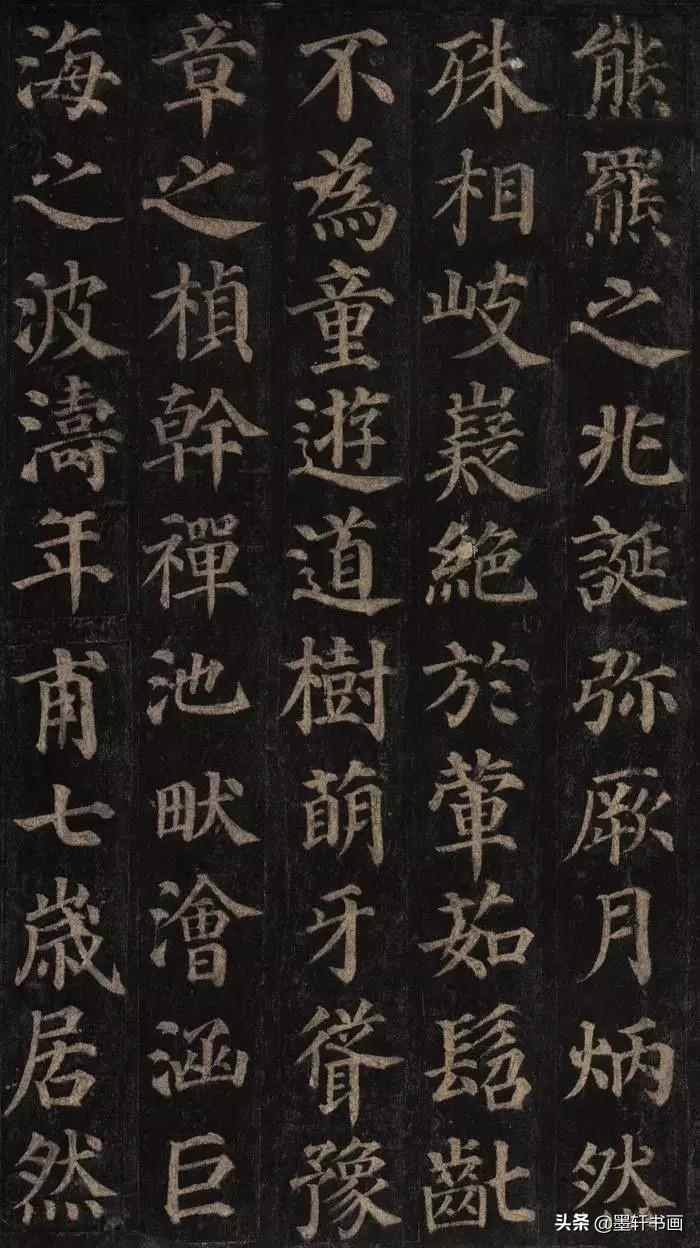 熊羆之兆誕弥厥月炳然
殊相岐嶷絶於葷茹髫齓
不為童遊道樹萌牙聳豫
章之楨幹禪池畎澮涵巨
海之波濤年甫七歳居然
头条 @墨轩书画